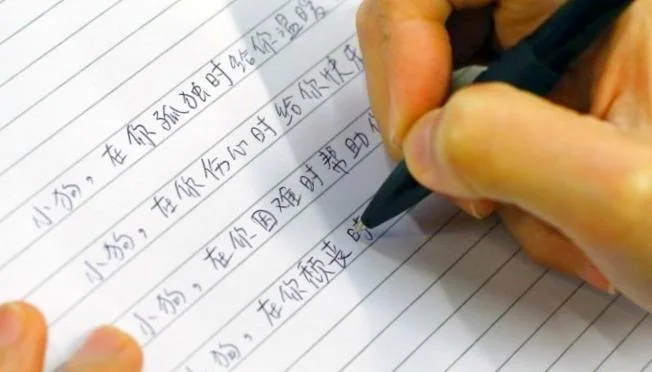 小狗，在你孤独时给你温暖
小狗，在你伤心时给你快乐
小狗，在你困难时帮助你
小狗，在你颓丧时